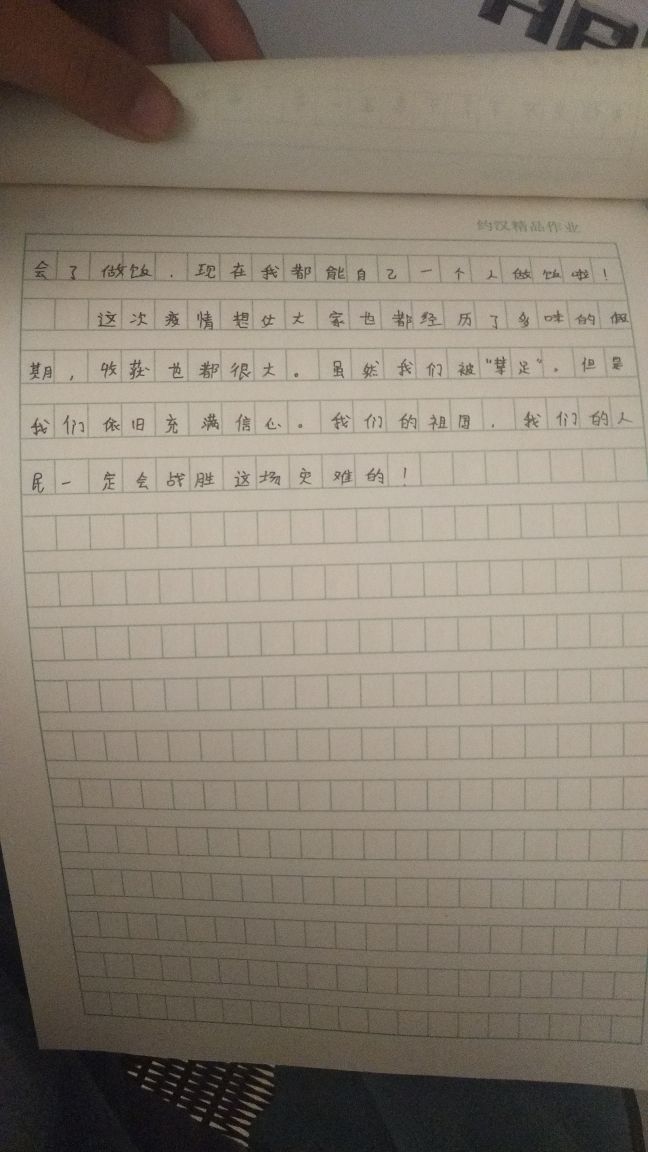 约汉精品作业
会了做饭，现在我都能自己一个人做饭啦！
这次疫情想必大家也都经历了多味的假
期，收获也都很大。虽然我们被“禁足”，但是
我们依旧充满信心。我们的祖国，我们的人
民一定会战胜这场灾难的！